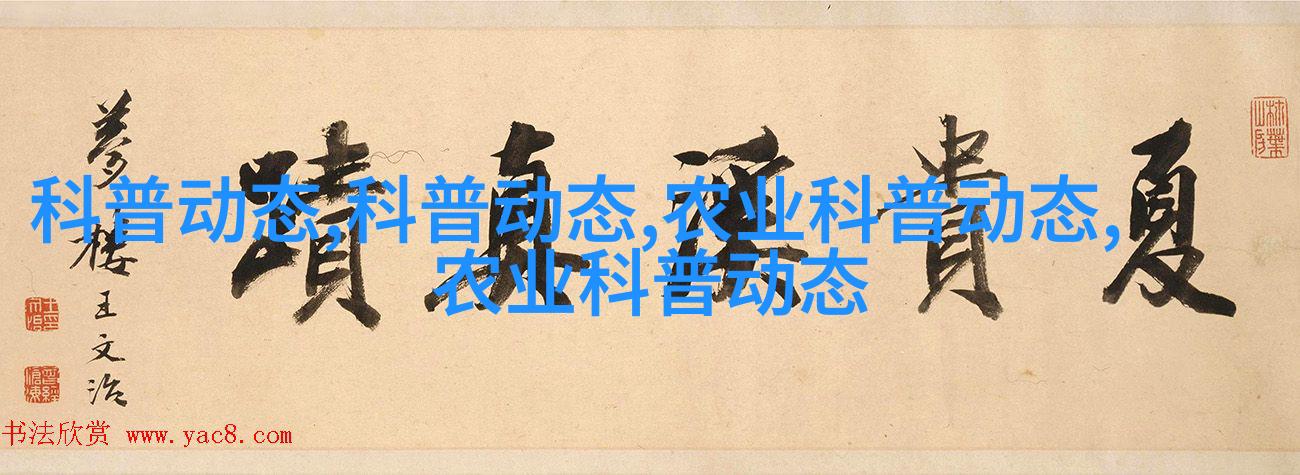 夏貴真蹟
夢樓王文治
曾經滄海
科普动态,科普动态,农业科普动态,
农业科普动态
书法欣赏 www.yac8.com